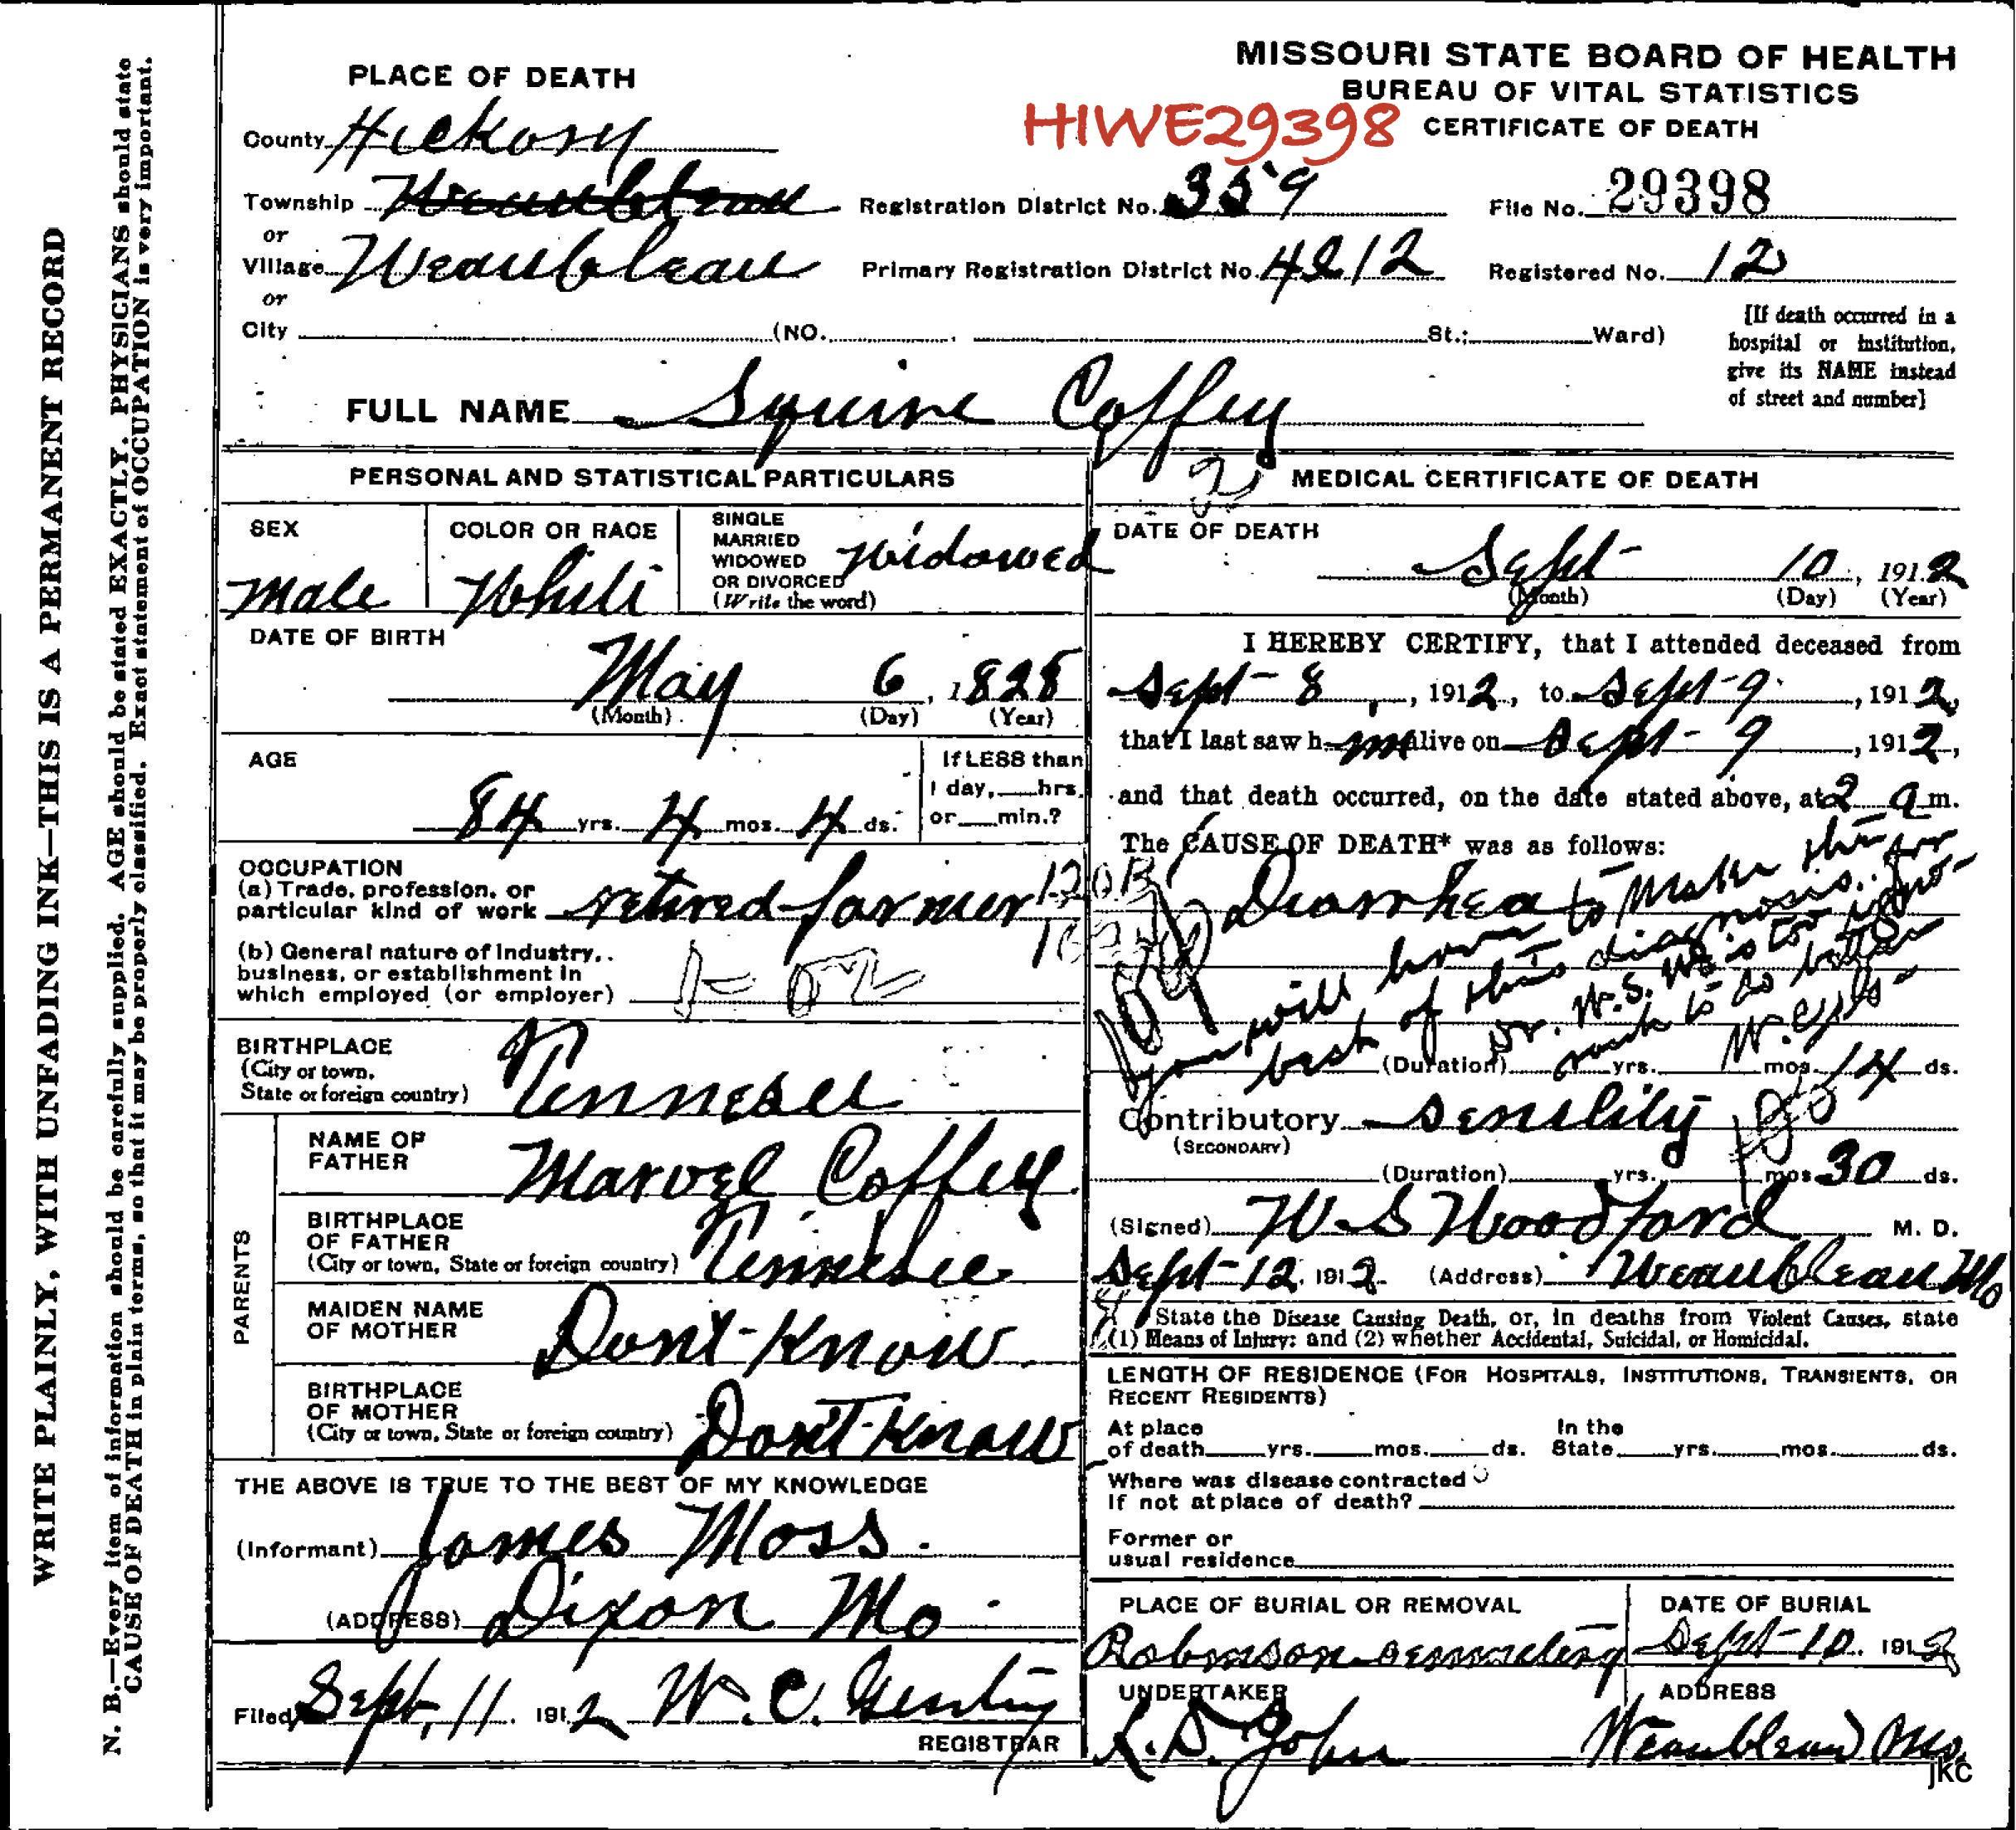 MISSOURI STATE BOARD OF HEALTH
BUREAU OF VITAL STATISTICS
CERTIFICATE OF DEATH
HIWE29398
PLACE OF DEATH
County Hickory
Township Weaubleau Registration District No. 359 File No. 29398
or
Village Weaubleau Primary Registration District No. 4212 Registered No. 12
or
City (NO. St.; Ward)
[If death occurred in a
hospital or institution,
give its NAME instead
of street and number]
FULL NAME Squire Coffey
PERSONAL AND STATISTICAL PARTICULARS
SEX
Male
COLOR OR RACE
White
SINGLE
MARRIED
WIDOWED
OR DIVORCED
(Write the word)
Widowed
DATE OF BIRTH
May 6, 1828
(Month) (Day) (Year)
AGE
84 yrs. 4 mos. 4 ds.
If LESS than
1 day, hrs.
or min.?
OCCUPATION
(a) Trade, profession, or
particular kind of work retired farmer
(b) General nature of industry,
business, or establishment in
which employed (or employer)
BIRTHPLACE
(City or town,
State or foreign country) Tennesee
PARENTS
NAME OF
FATHER Marvel Coffey
BIRTHPLACE
OF FATHER
(City or town, State or foreign country) Tennesee
MAIDEN NAME
OF MOTHER Dont Know
BIRTHPLACE
OF MOTHER
(City or town, State or foreign country) Don't Know
THE ABOVE IS TRUE TO THE BEST OF MY KNOWLEDGE
(Informant) James Moss
(ADDRESS) Dixon Mo
Filed Sept. 11 1912 W. C. Gentry
REGISTRAR
2
MEDICAL CERTIFICATE OF DEATH
DATE OF DEATH
Sept 10, 1912
(Month) (Day) (Year)
I HEREBY CERTIFY, that I attended deceased from
Sept 8, 1912, to Sept 9, 1912,
that I last saw h im alive on Sept 9, 1912,
and that death occurred, on the date stated above, at 2 a m.
The CAUSE OF DEATH* was as follows:
Diarrhea
you will have to make the
best of this diagnosis. for
Dr. W.S. W. is too igno-
rant to do better
(Duration) yrs. mos. 14 ds.
Contributory Senility
(SECONDARY)
(Duration) yrs. mos. 30 ds.
(Signed) W. S Woodford M. D.
Sept 12, 1912 (Address) Weaubleau Mo
State the Disease Causing Death, or, in deaths from Violent Causes, state
(1) Means of Injury; and (2) whether Accidental, Suicidal, or Homicidal.
LENGTH OF RESIDENCE (FOR HOSPITALS, INSTITUTIONS, TRANSIENTS, OR
RECENT RESIDENTS)
At place In the
of death yrs. mos. ds. State yrs. mos. ds.
Where was disease contracted
If not at place of death?
Former or
usual residence
PLACE OF BURIAL OR REMOVAL
Robinson
DATE OF BURIAL
Sept 10 1912
UNDERTAKER
John
ADDRESS
Weaubleau Mo.
jkc
WRITE PLAINLY, WITH UNFADING INK—THIS IS A PERMANENT RECORD
N. B.—Every item of information should be carefully supplied. AGE should be stated EXACTLY. PHYSICIANS should state
CAUSE OF DEATH in plain terms, so that it may be properly classified. Exact statement of OCCUPATION is very important.